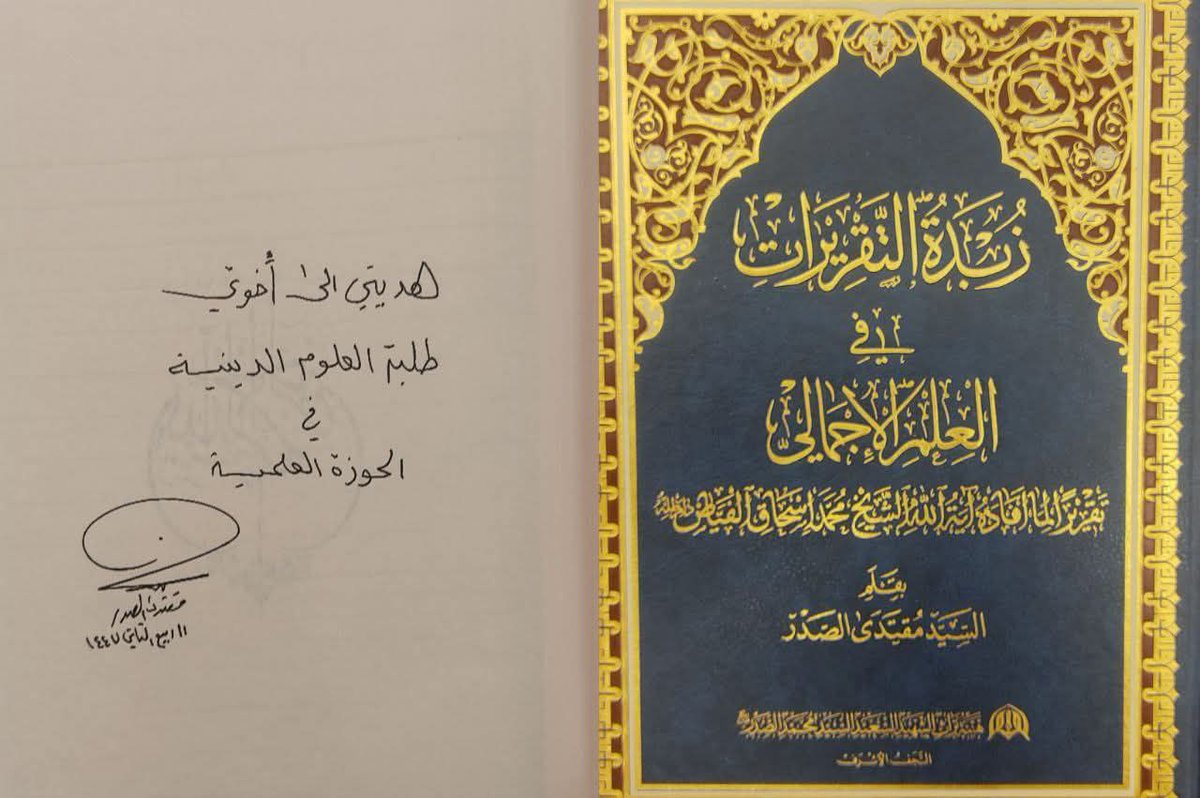 هديتي الى أخوتي
طلبة العلوم الدينية
في
الحوزة العلمية
مقتدى الصدر
١١ ربيع الثاني ١٤٤٧
زُبْدَةُ التَّقْرِيرَاتِ
فِي
العِلْمِ الإِجْمَالِيّ
تقريرًا لما أفاده آية الله الشيخ محمد إسحاق الفياض
بقلم
السيد مقتدى الصدر
هيئة تراث الشهيد السعيد السيد محمد الصدر
النجف الأشرف